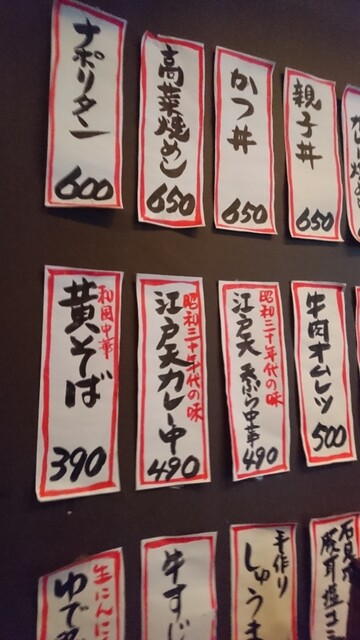 ナポリタン
600
高菜焼めし
650
かつ丼
650
親子丼
650
和風中華
黄そば
390
昭和三十年代の味
江戸天カレー中
490
昭和三十年代の味
江戸天 天ぷら中華
490
牛肉オムレツ
500
生にんにく
ゆで
牛すじ
手作り
しゅうま
石見
豚耳塩コ